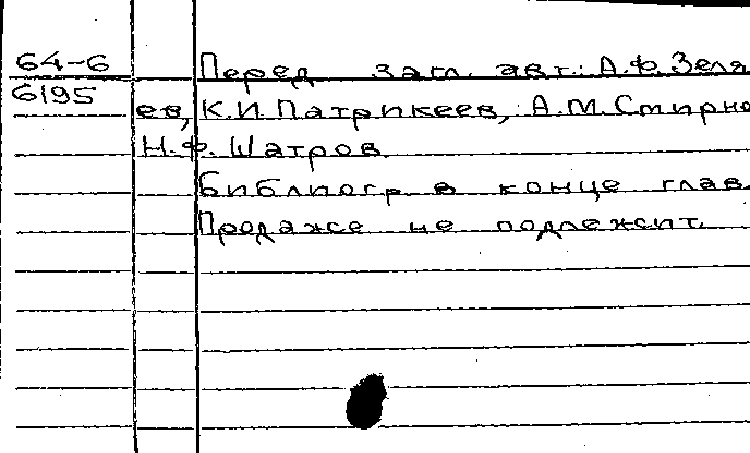 64-6 Перед загл. авт.: А.Ф. Зеля
6195 ев, К.И. Патрикеев, А.М. Смирно
Н.Ф. Шатров
Библиогр в конце глав.
Продаже не подлежит.